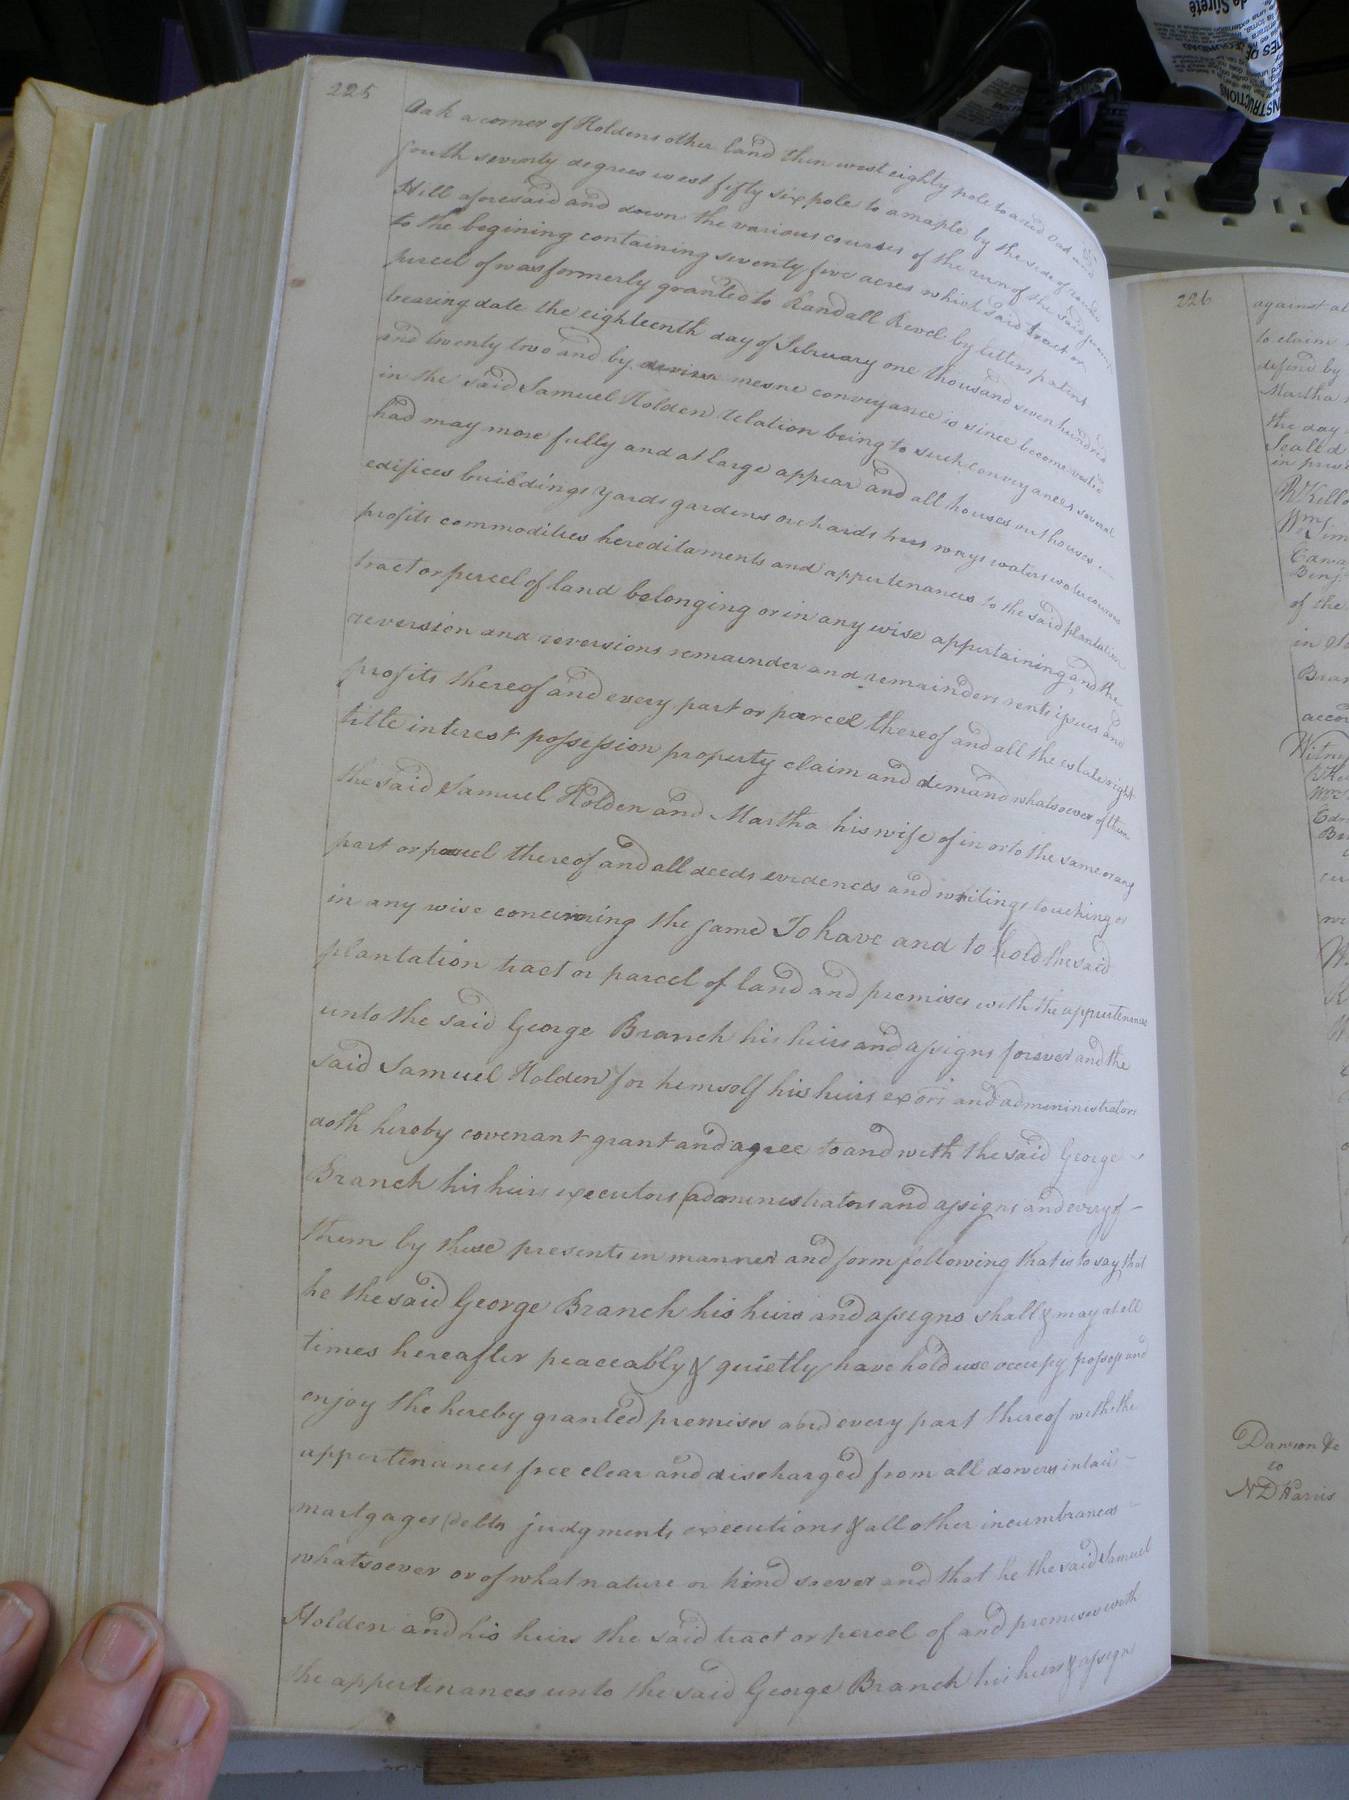 225
Oak a corner of Holdens other land then west eighty pole to a red Oak and
south seventy degrees west fifty six pole to a maple by the side of
Hill aforesaid and down the various courses of the run of the said
to the begining containing seventy five acres which said tract or
percel of was formerly granted to Randall Revel by letters patent
bearing date the eighteenth day of February one thousand seven hundred
and twenty two and by mesne conveyance is since become vested
in the said Samuel Holden relation being to such conveyances several
had may more fully and at large appear and all houses out houses
edifices buildings yards gardens orchards ways waters watercourses
profits commodities hereditaments and appertenances to the said plantation
tract or percel of land belonging or in any wise appertaining and the
reversion and reversions remainder and remainders rents issues and
profits thereof and every part or parcel thereof and all the estate right
title interest possession property claim and demand whatsoever of them
the said Samuel Holden and Martha his wife of in or to the same or any
part or parcel thereof and all deeds evidences and writings touching or
in any wise concirning the same To have and to hold the said
plantation tract or parcel of land and premises with the appertenances
unto the said George Branch his heirs and assigns forever and the
said Samuel Holden for hemself his heirs exors and admininistrators
doth hereby covenant grant and agree to and with the said George
Branch his heirs executors administrators and assigns and every of
them by these presents in manner and form following that is to say that
he the said George Branch his heirs and assigns shall & may at all
times hereafter peaceably & quietly have hold use occupy possess and
enjoy the hereby granted premises and every part thereof with the
appertenances free clear and discharged from all dowers intail
mortgages debts judgments executions & all other incumbrances
whatsoever or of what nature or kind soever and that he the said Samuel
Holden and his heirs the said tract or percel of and premises with
the appertenances unto the said George Branch his heirs & assigns
226
against al
to claim
defend by
Martha
the day
Seal d
in pres
of the
in
Bran
accor
Dawson &c
to
N D Harris